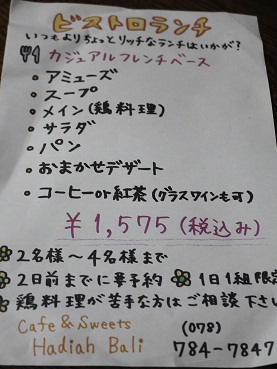 ビストロランチ
いつもよりちょっとリッチなランチはいかが?
カジュアルフレンチベース
・アミューズ
・スープ
・メイン(鶏料理)
・サラダ
・パン
・おまかせデザート
・コーヒーor紅茶(グラスワインも可)
¥1,575(税込み)
2名様〜4名様まで
2日前までに要予約 1日1組限定
鶏料理が苦手な方はご相談下さい
Cafe & Sweets (078)
Hadiah Bali 784-7847